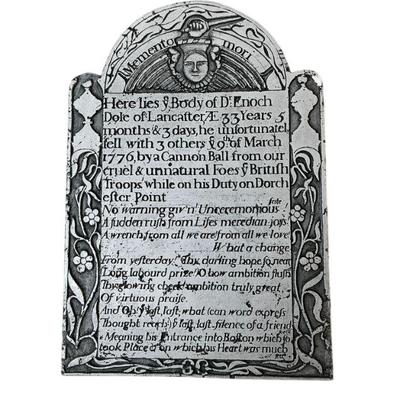 Memento mori
Here lies ỿ Body of Dr. Enoch
Dole of Lancaster Æ 33 Years 5
months & 3 days, he unfortunatel
fell with 3 others ỿ 9th of March
1776, by a Cannon Ball from our
cruel & unnatural Foes ỿ British
Troops while on his Duty on Dorch
ester Point
No warning giv'n! Unceremonious fate
A sudden rush from Lifes meredian joys
A wrench from all we are! from all we love
What a change
From yesterday! Thy darling hope so near
Long labourd prize! O how ambition flush
Thy glowing cheek ambition truly great,
Of virtuous praise.
And Oh! ỿ last, last, what can word express
Thought reach! ỿ last, last, silence of a friend
Meaning his Entrance into Boston which so
took Place & on which his Heart was much